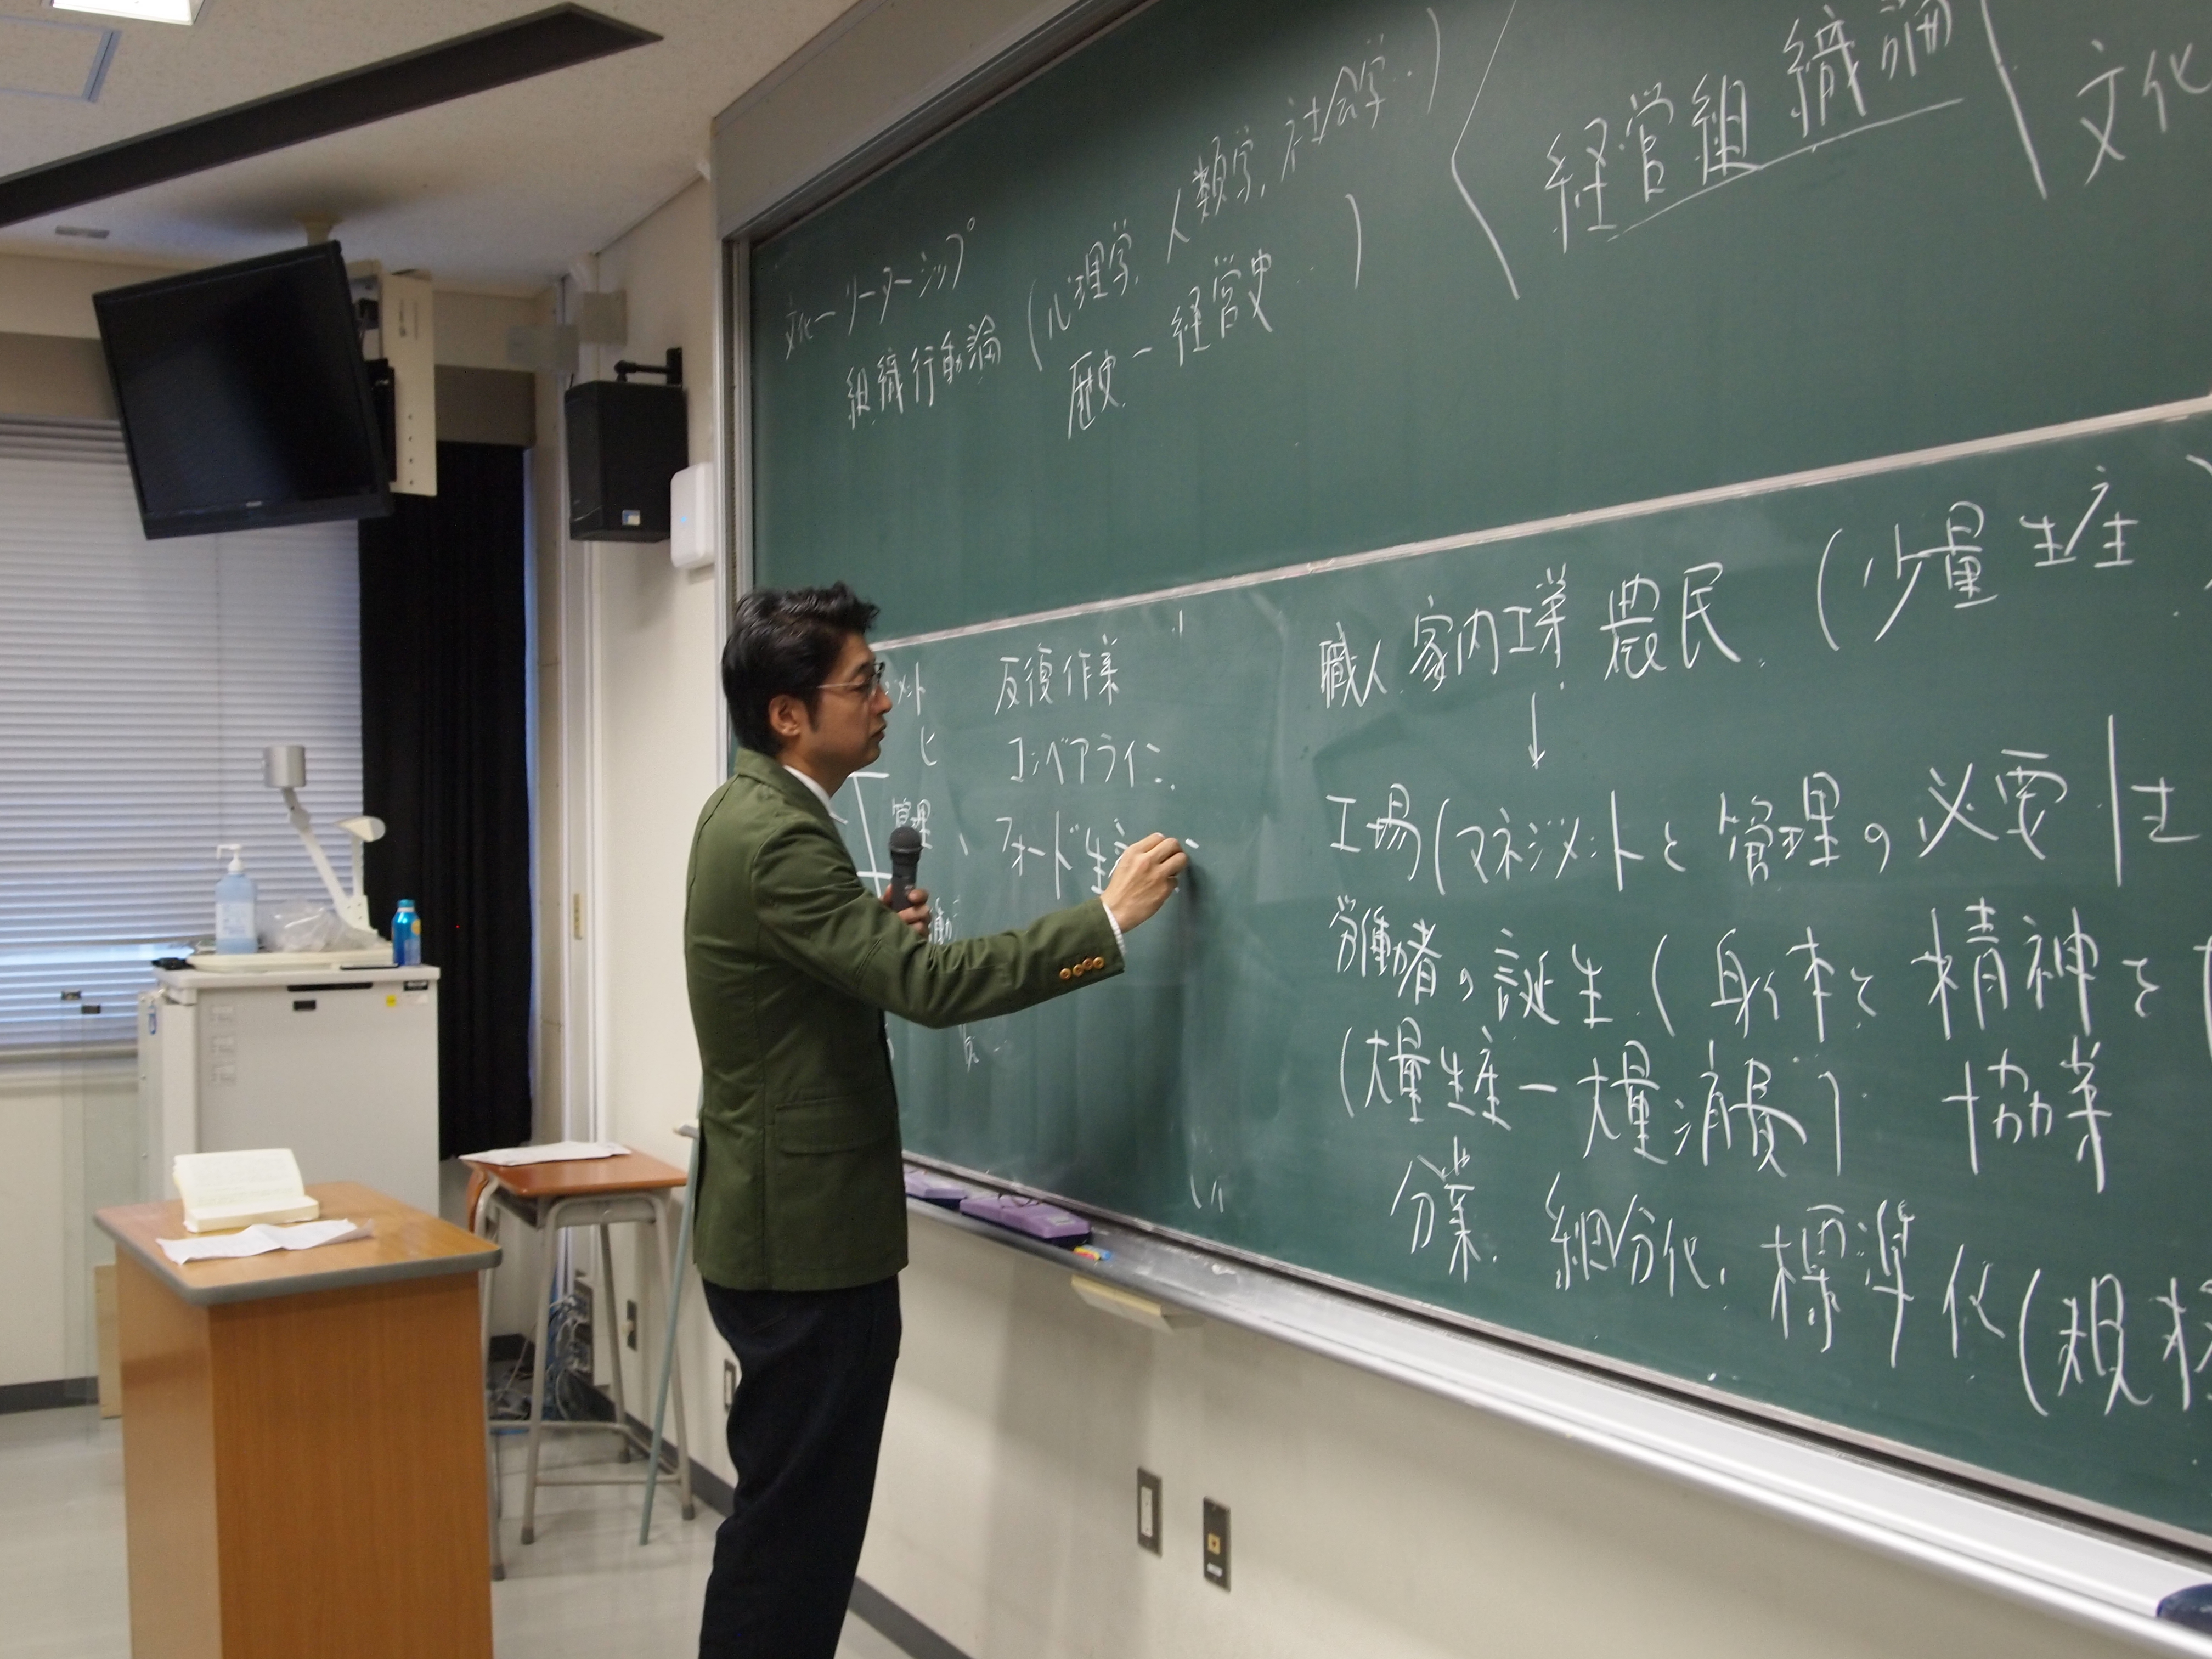 文化ーリーダーシップ
組織行動論 (心理学, 人類学, 社会学..)
歴史ー経営史
経営組織論
文化
反復作業
コンベアライン
管理
フォード生産
職人 家内工業 農民 (少量生産)
↓
工場 (マネジメントと管理の必要性
労働者の誕生 (身体と精神を
(大量生産ー大量消費) 協業
分業. 細分化. 標準化 (規格